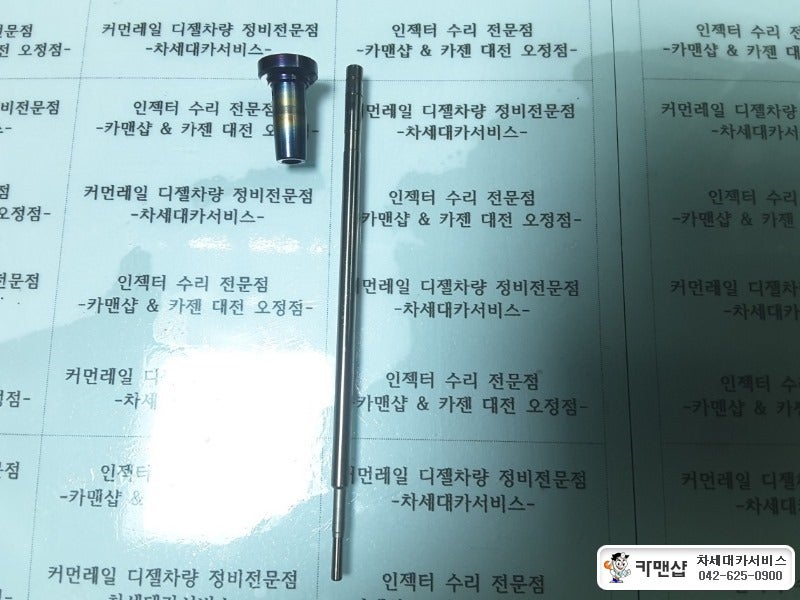 전문점
커먼레일 디젤차량 정비전문점
인젝터 수리 전문점
인젝터 수리
대전 오정점-
-차세대카서비스-
-카맨샵 & 카젠 대전 오정점-
-카맨샵 & 카젠 대
정비전문점
인젝터 수리 전문점
커먼레일 디젤차량 정비전문점
커먼레일 디젤차량
-카맨샵 & 카젠 대전 오정점-
-차세대카서비스-
-차세대카서
커먼레일 디젤차량 정비전문점
인젝터 수리 전문점
인젝터 수리
오정점-
-차세대카서비스-
카맨샵 & 카젠 대전 오정점-
-카맨샵 & 카젠
전문점
인젝터 수리 전문점
먼레일 디젤차량 정비전문점
커먼레일 디젤차
-카맨샵 & 카젠 대전 오정점-
-차세대카서비스-
-차세대카
커먼레일
인젝터 수리 전문점
인젝터 수
정점-
-차세
카맨샵 & 카젠 대전 오정점-
-카맨샵 & 카젠
인젝터
먼레일 디젤차량 정비전문점
커먼레일 디젤
-카맨샵 &
-차세대카서비스-
-차세대
커먼레일 디젤차량 정비전문점
인젝터 수리 전문점
카맨샵 차세대카서비스
042-625-0900